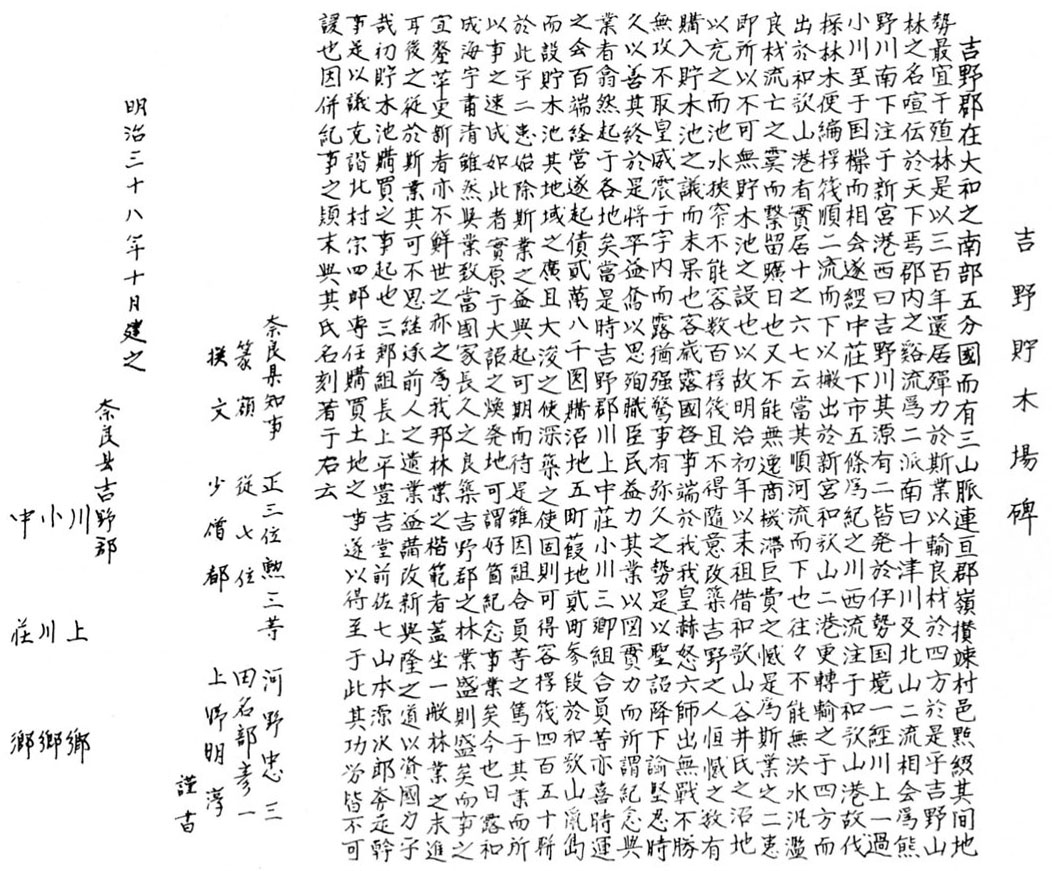 吉野貯木場碑
吉野郡在大和之南部五分國而有三山脈連亘郡嶺攅竦村邑㸃綴其間地
勢最宜干殖林是以三百年還居殫力於斯業以輸良材於四方於是乎吉野山
林之名喧伝於天下焉郡内之谿流為二派南曰十津川及北山二流相会為熊
野川南下注于新宮港西曰吉野川其源有二皆発於伊勢国境一経川上一過
小川至于国樔而相会遂經中荘下市五條為紀之川西流注于和歌山港故伐
採林木便編桴筏順二流而下以搬出於新宮和歌山二港更轉輸之于四方而
出於和歌山港者實居十之六七云當其順河流而下也往々不能無洪水汎濫
良材流亡之虞而繋留曠日也又不能無逸商機滞巨費之憾是為斯業之二患
即所以不可無貯木池之設也以故明治初年以来祖借和歌山谷井氏之沼地
以充之而池水狹窄不能容数百桴筏且不得隨意改築吉野之人恒憾之数有
購入貯木池之議而未果也客歳露國啓事端於我我皇赫怒六師出無戰不勝
無攻不取皇威震于宇内而露猶强驁事有弥久之勢是以聖詔降下諭堅忍時
久以善其終於是将平益奮以思殉職臣民益力其業以図實力而所謂紀念與
業者翕然起于各地矣當是時吉野郡川上中荘小川三郷組合員等亦喜時運
之会百端経営遂起債貳萬八千圓購沼地五町葭地貳町参段於和歌山鼠島
而設貯木池其地域之廣且大浚之使深築之使固則可得容桴筏四百五十騈
於此乎二患始除斯業之益與起可期而待是雖因組合員等之篤于其業而所
以事之速成如此者實原于大詔之煥発地可謂好箇紀念事業矣今也日露和
成海宇肅清雖然與業致當國家長久之良築吉野郡之林業盛則盛矣而事之
宜釐革更新者亦不鮮世之亦之為我那林業之楷範者蓋坐一般林業之未進
耳後之従於斯業其可不思継述前人之遺業益講改新與隆之道以資國力乎
哉初貯木池購買之事起也三郷組長上平豊吉堂前佐七山本源次郎夲疋幹
事是以議克諧北村宗四郎専任購買土地之事遂以得至于此其功労皆不可
諼也因併紀事之顛末與其氏名刻著于右云
奈良県知事　正三位勲三等　河野忠三
篆額　従七位　田名部彦一
撰文　少僧都　上野明淳
謹書
明治三十八年十月建之
奈良县吉野郡
川上郷
小川郷
中荘郷